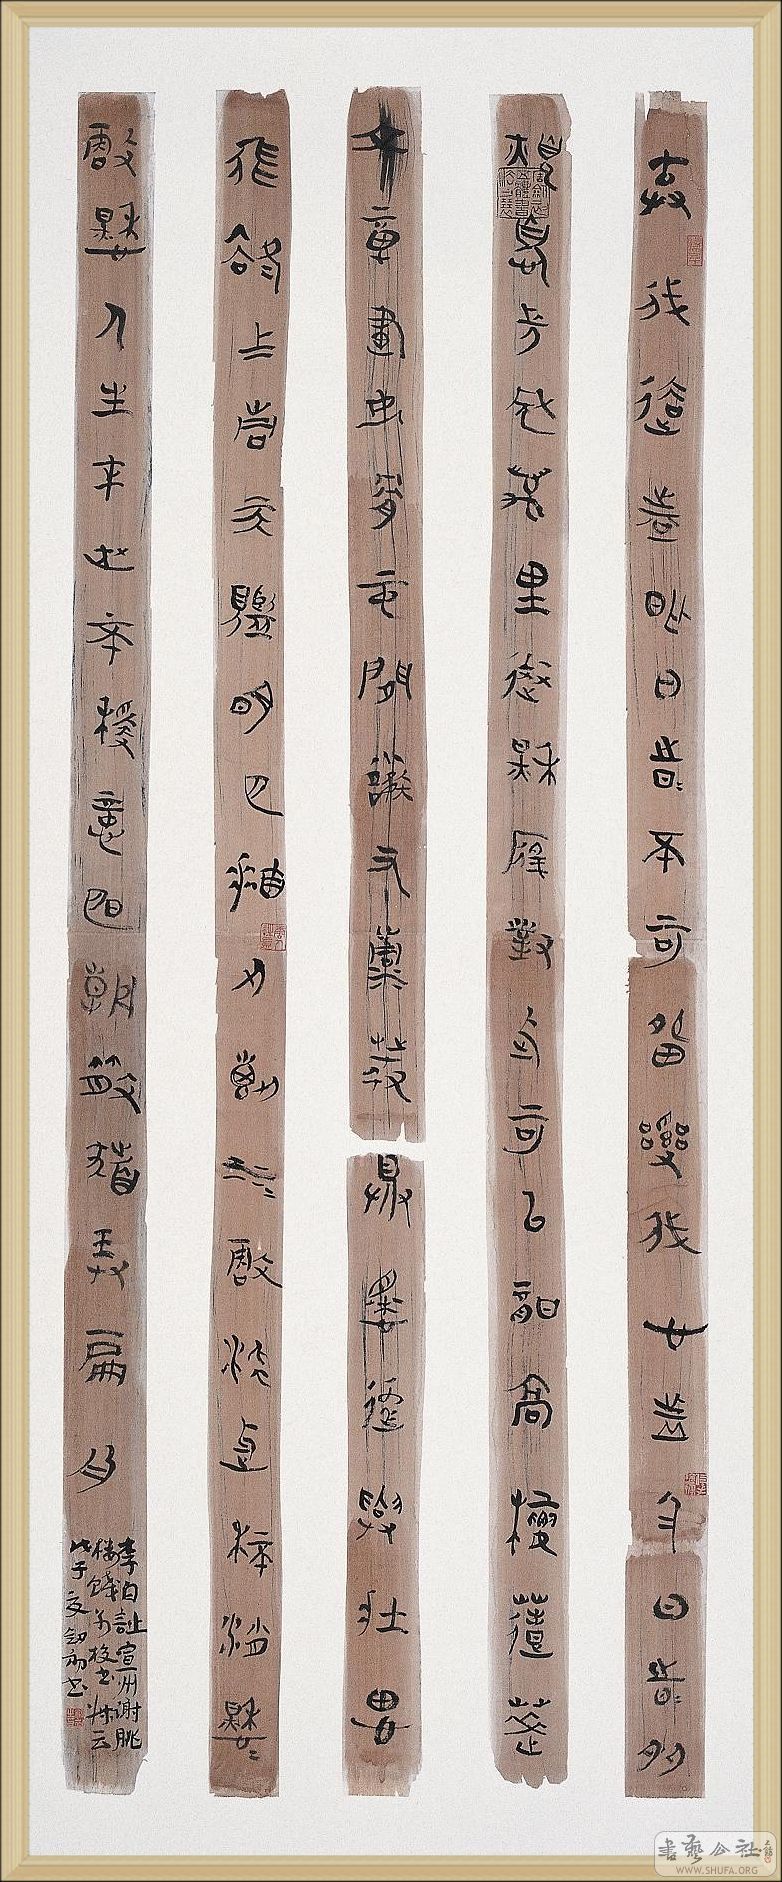 棄我去者昨日之日不可留亂我心者今日之日多
煩憂長風萬里送秋雁對此可以酣高樓蓬萊
文章建安骨中間小謝又清發俱懷逸興壯思
飛欲上青天覽明月抽刀斷水水更流舉杯消愁愁
更愁人生在世不稱意明朝散髮弄扁舟
李白詩宣州谢朓
楼餞别校书叔云
戊子夏劍初书
書藝公社
WWW.SHUFA.ORG